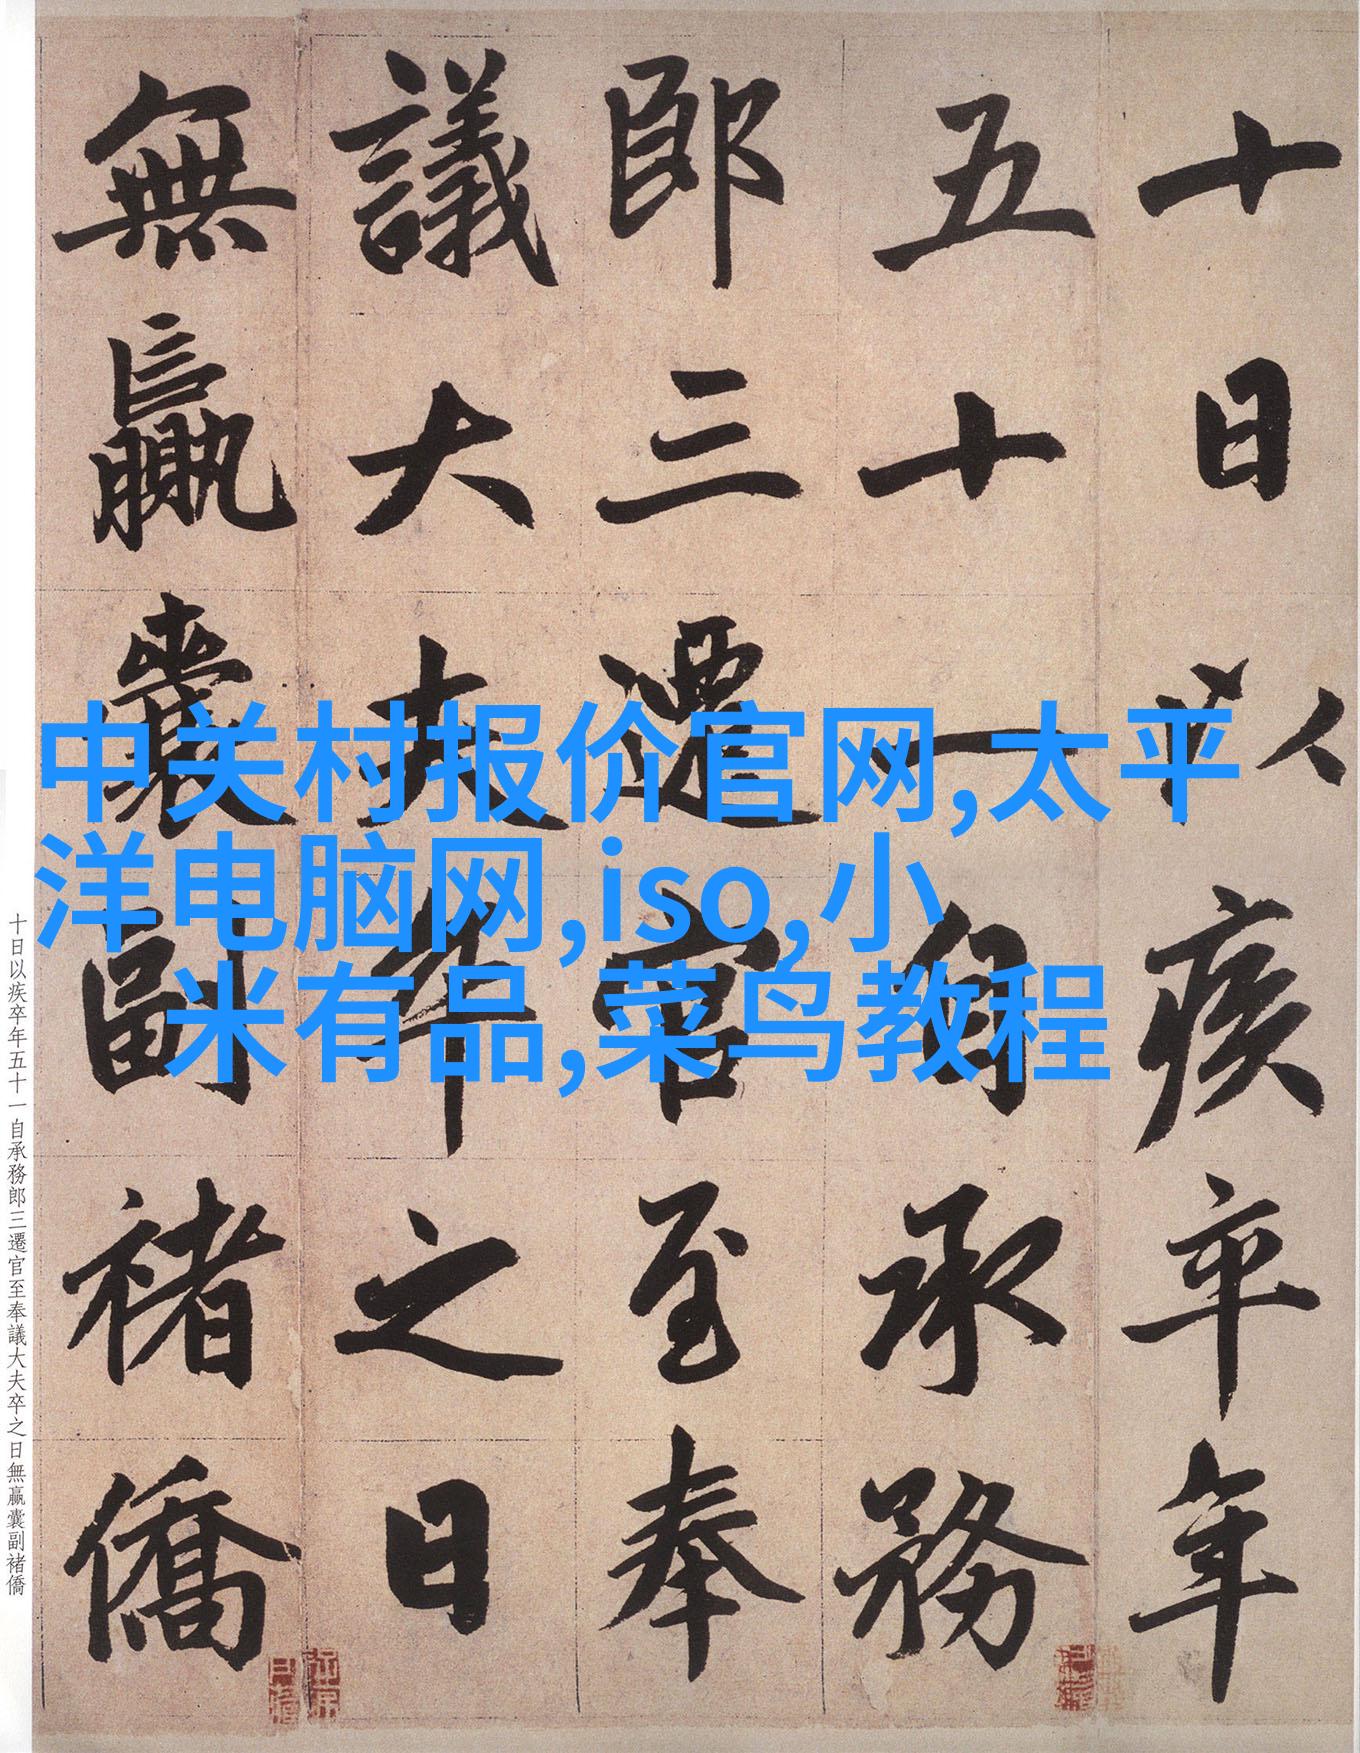 十日以疾卒年
五十一自承務
郎三遷官至奉
議大夫卒之日
無贏囊副褚僑
中关村报价官网,太平
洋电脑网,iso,小
米有品,菜鸟教程
十日以疾卒年五十一自承務郎三遷官至奉議大夫卒之日無贏囊副褚僑